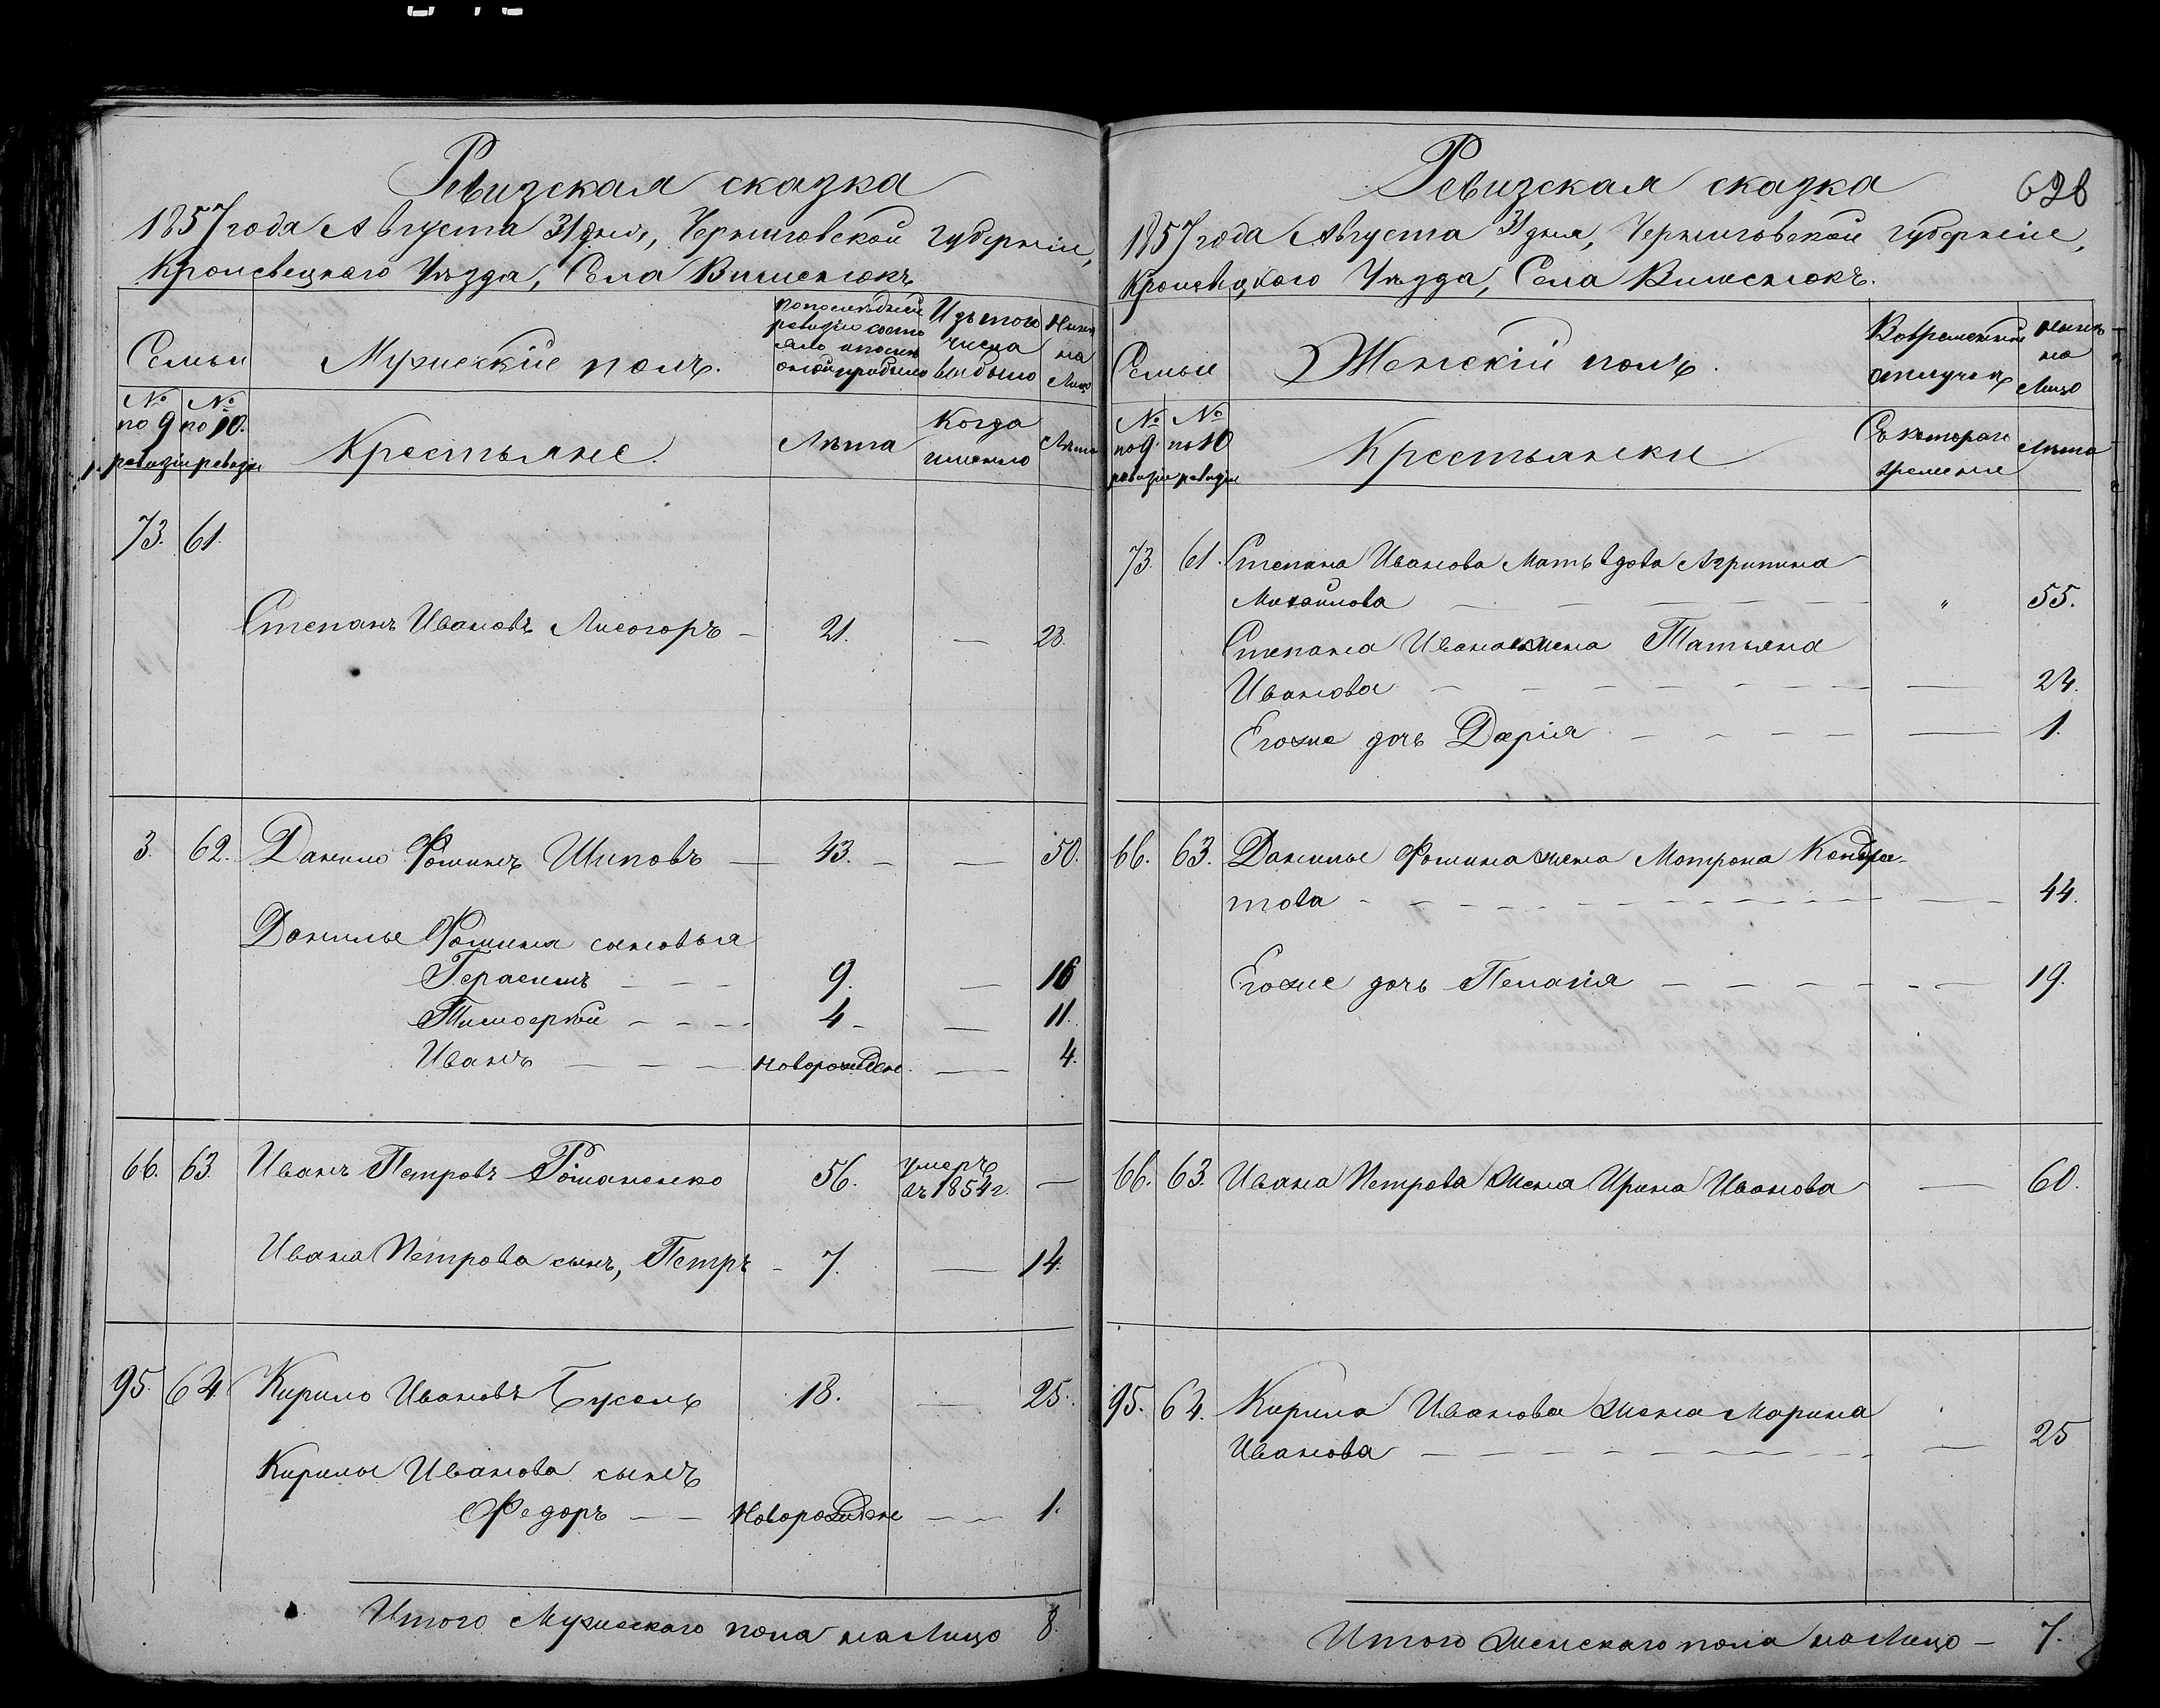 Ревизская сказка
1857 года Августа 31 дня, Черниговской губерніи,
Кролевецкаго Уезда, Села Вишенюкъ
Семьи
Мужескій полъ.
по последней
ревизіи состо
яло и после
оной прибыло
Изъ того
числа
выбыло
Ныне
на
Лицо
№ по 9 ревизіи
№ по 10. ревизіи
Крестьяне.
Лѣта
Когда
именно
Лѣта
73. 61.
Степанъ Ивановъ Лисогоръ — 21. — 28.
3. 62. Данило Фоминъ Шиповъ — 43. — — 50.
Данилы Фомина сыновья
Герасимъ — — — 9. — 16
Тимофей — — — 4 — — 11.
Иванъ — — — новорожден. — 4.
66. 63. Иванъ Петровъ Романенко 56. умеръ въ 1854 г. —
Ивана Петрова сынъ, Петръ — 7. — 14.
95. 64. Кирило Ивановъ Бусель 18. — 25.
Кирилы Иванова сынъ
Федоръ — — Новорожден — — 1.
Итого Мужескаго пола на Лицо 8.
Ревизская сказка
628
1857 года Августа 31 дня, Черниговской губерніи,
Кролевецкаго Уѣзда, Села Вишенюкъ.
Семьи
Женскій полъ.
Во временной
отлучкѣ
ныне
на
Лицо
№ по 9. ревизіи
№ по 10 ревизіи
Крестьянки
Съ котораго
времени
Лѣта
73. 61. Степана Иванова Мать вдова Агрипина
Михайлова — — — — — " 55.
Степана Иванова жена Татьяна
Иванова — — — — — — — — 24.
Его же дочь Дарія — — — — — 1.
66. 63. Данилы Фомина жена Мотрона Кондра-
това — — — — — — — — — — 44.
Его же дочь Пелагія — — — — — — 19.
66. 63. Ивана Петрова жена Ирина Иванова — 60.
95. 64. Кирила Иванова жена Марина
Иванова — — — — — — — — 25
Итого женскаго пола на Лицо — 7.